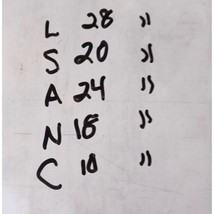 L 28 "
S 20 "
A 24 "
N 18 "
C 10 "